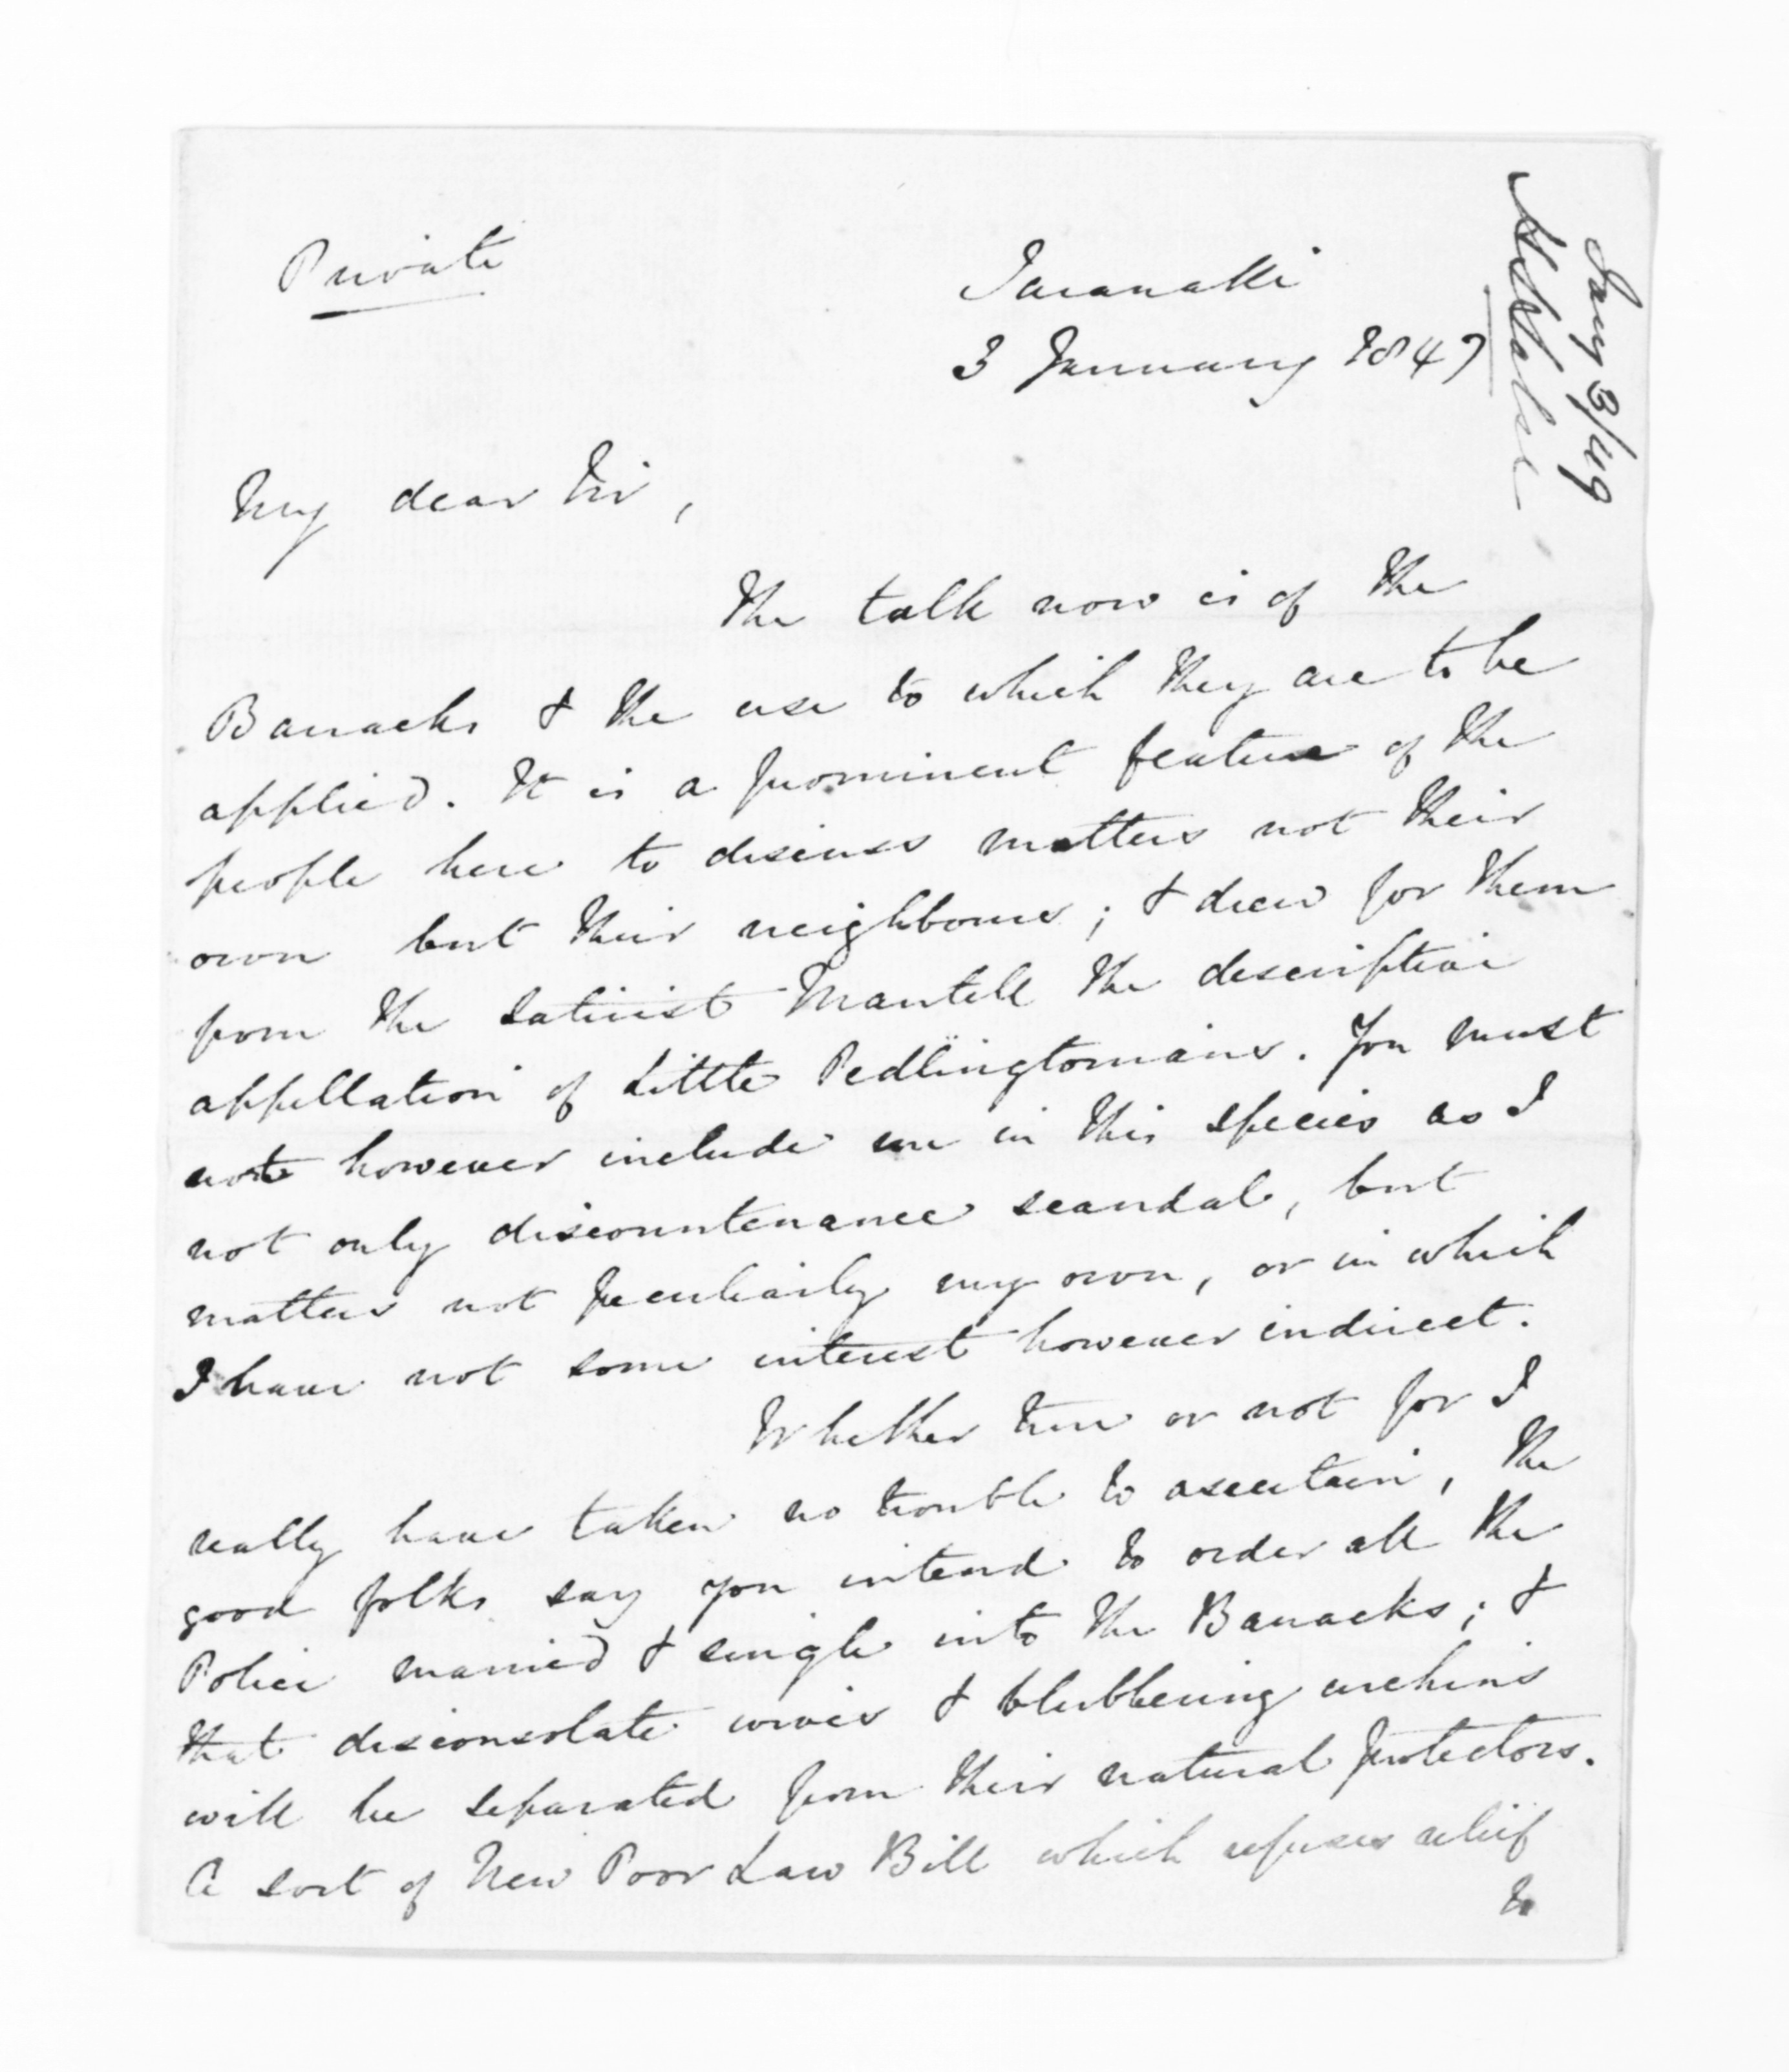 Private
Taranaki
3 January 1849
Jany 3/49
H Halse
My dear Sir,
The talk now is of the
Barracks & the use to which they are to be
applied. It is a prominent feature of the
people here to discuss matters not their
own but their neighbours; & drew for them
from the satirist Mantell the descriptive
appellation of Little Pedlingtonians. You must
not however include me in this species as I
not only discountenance scandal, but
matters not peculiarly my own, or in which
I have not some interest however indirect.
Whether true or not for I
really have taken no trouble to ascertain, the
good folks say you intend to order all the
Police married & single into the Barracks; &
that disconsolate wives & blubbering urchins
will be separated from their natural protectors.
A sort of New Poor Law Bill which refuses relief
to